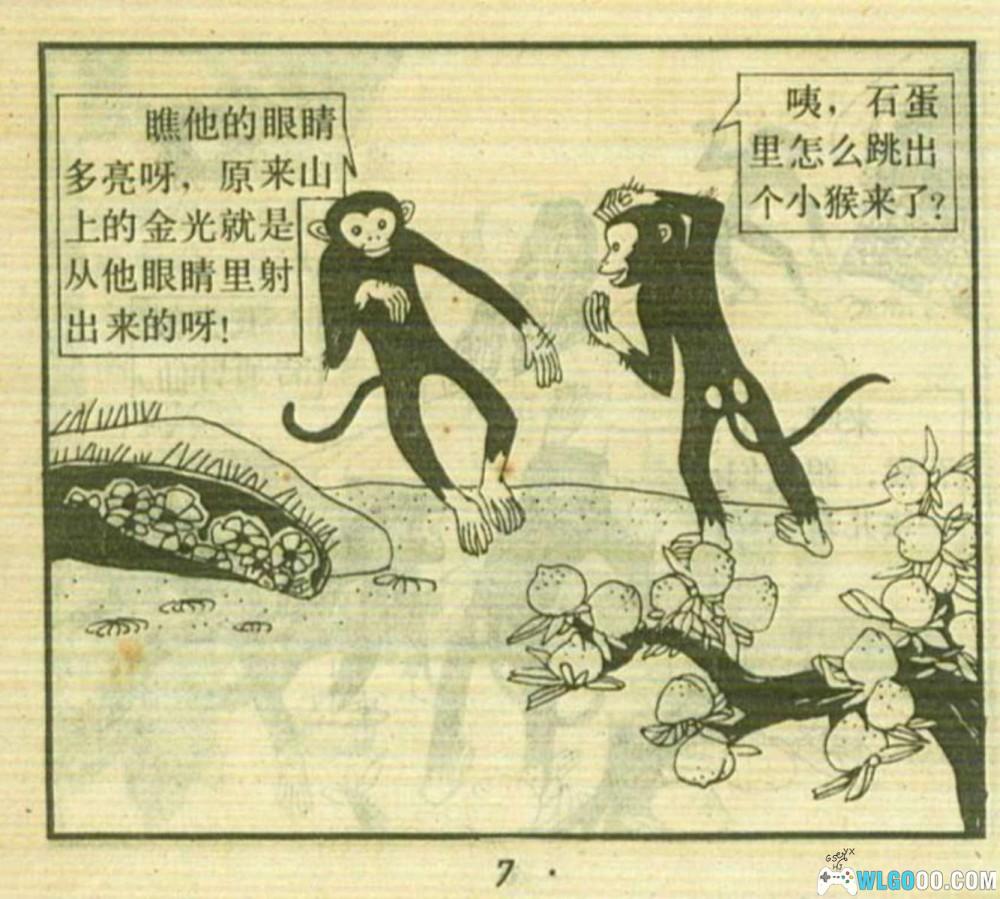 瞧他的眼睛
多亮呀，原来山
上的金光就是
从他眼睛里射
出来的呀！
咦，石蛋
里怎么跳出
个小猴来了？
7 ·
WLGOOO.COM